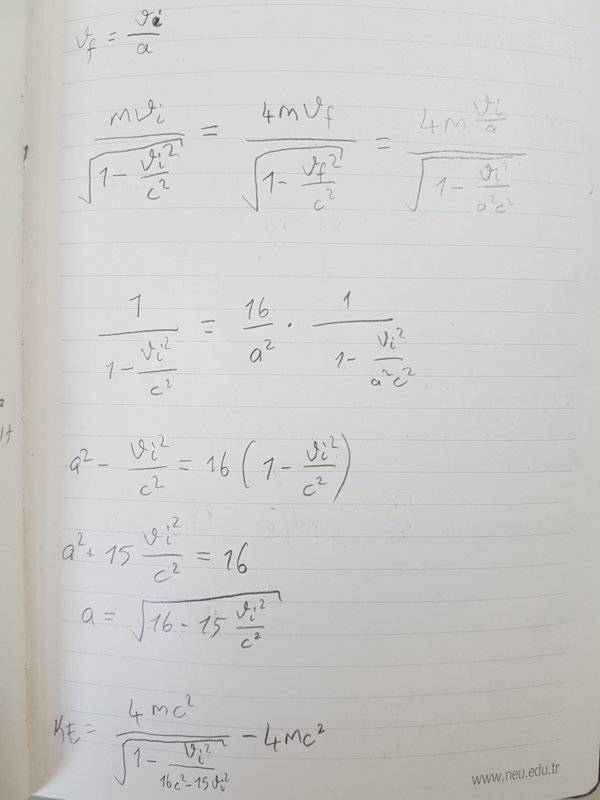 v_f = v_i / a
m v_i / √(1 - v_i² / c²) = 4 m v_f / √(1 - v_f² / c²) = 4 m (v_i / a) / √(1 - v_i² / a²c²)
1 / (1 - v_i² / c²) = 16 / a² · 1 / (1 - v_i² / a²c²)
a² - v_i² / c² = 16 (1 - v_i² / c²)
a² + 15 v_i² / c² = 16
a = √(16 - 15 v_i² / c²)
KE = 4 m c² / √(1 - v_i² / (16c² - 15v_i²)) - 4 m c²
www.neu.edu.tr